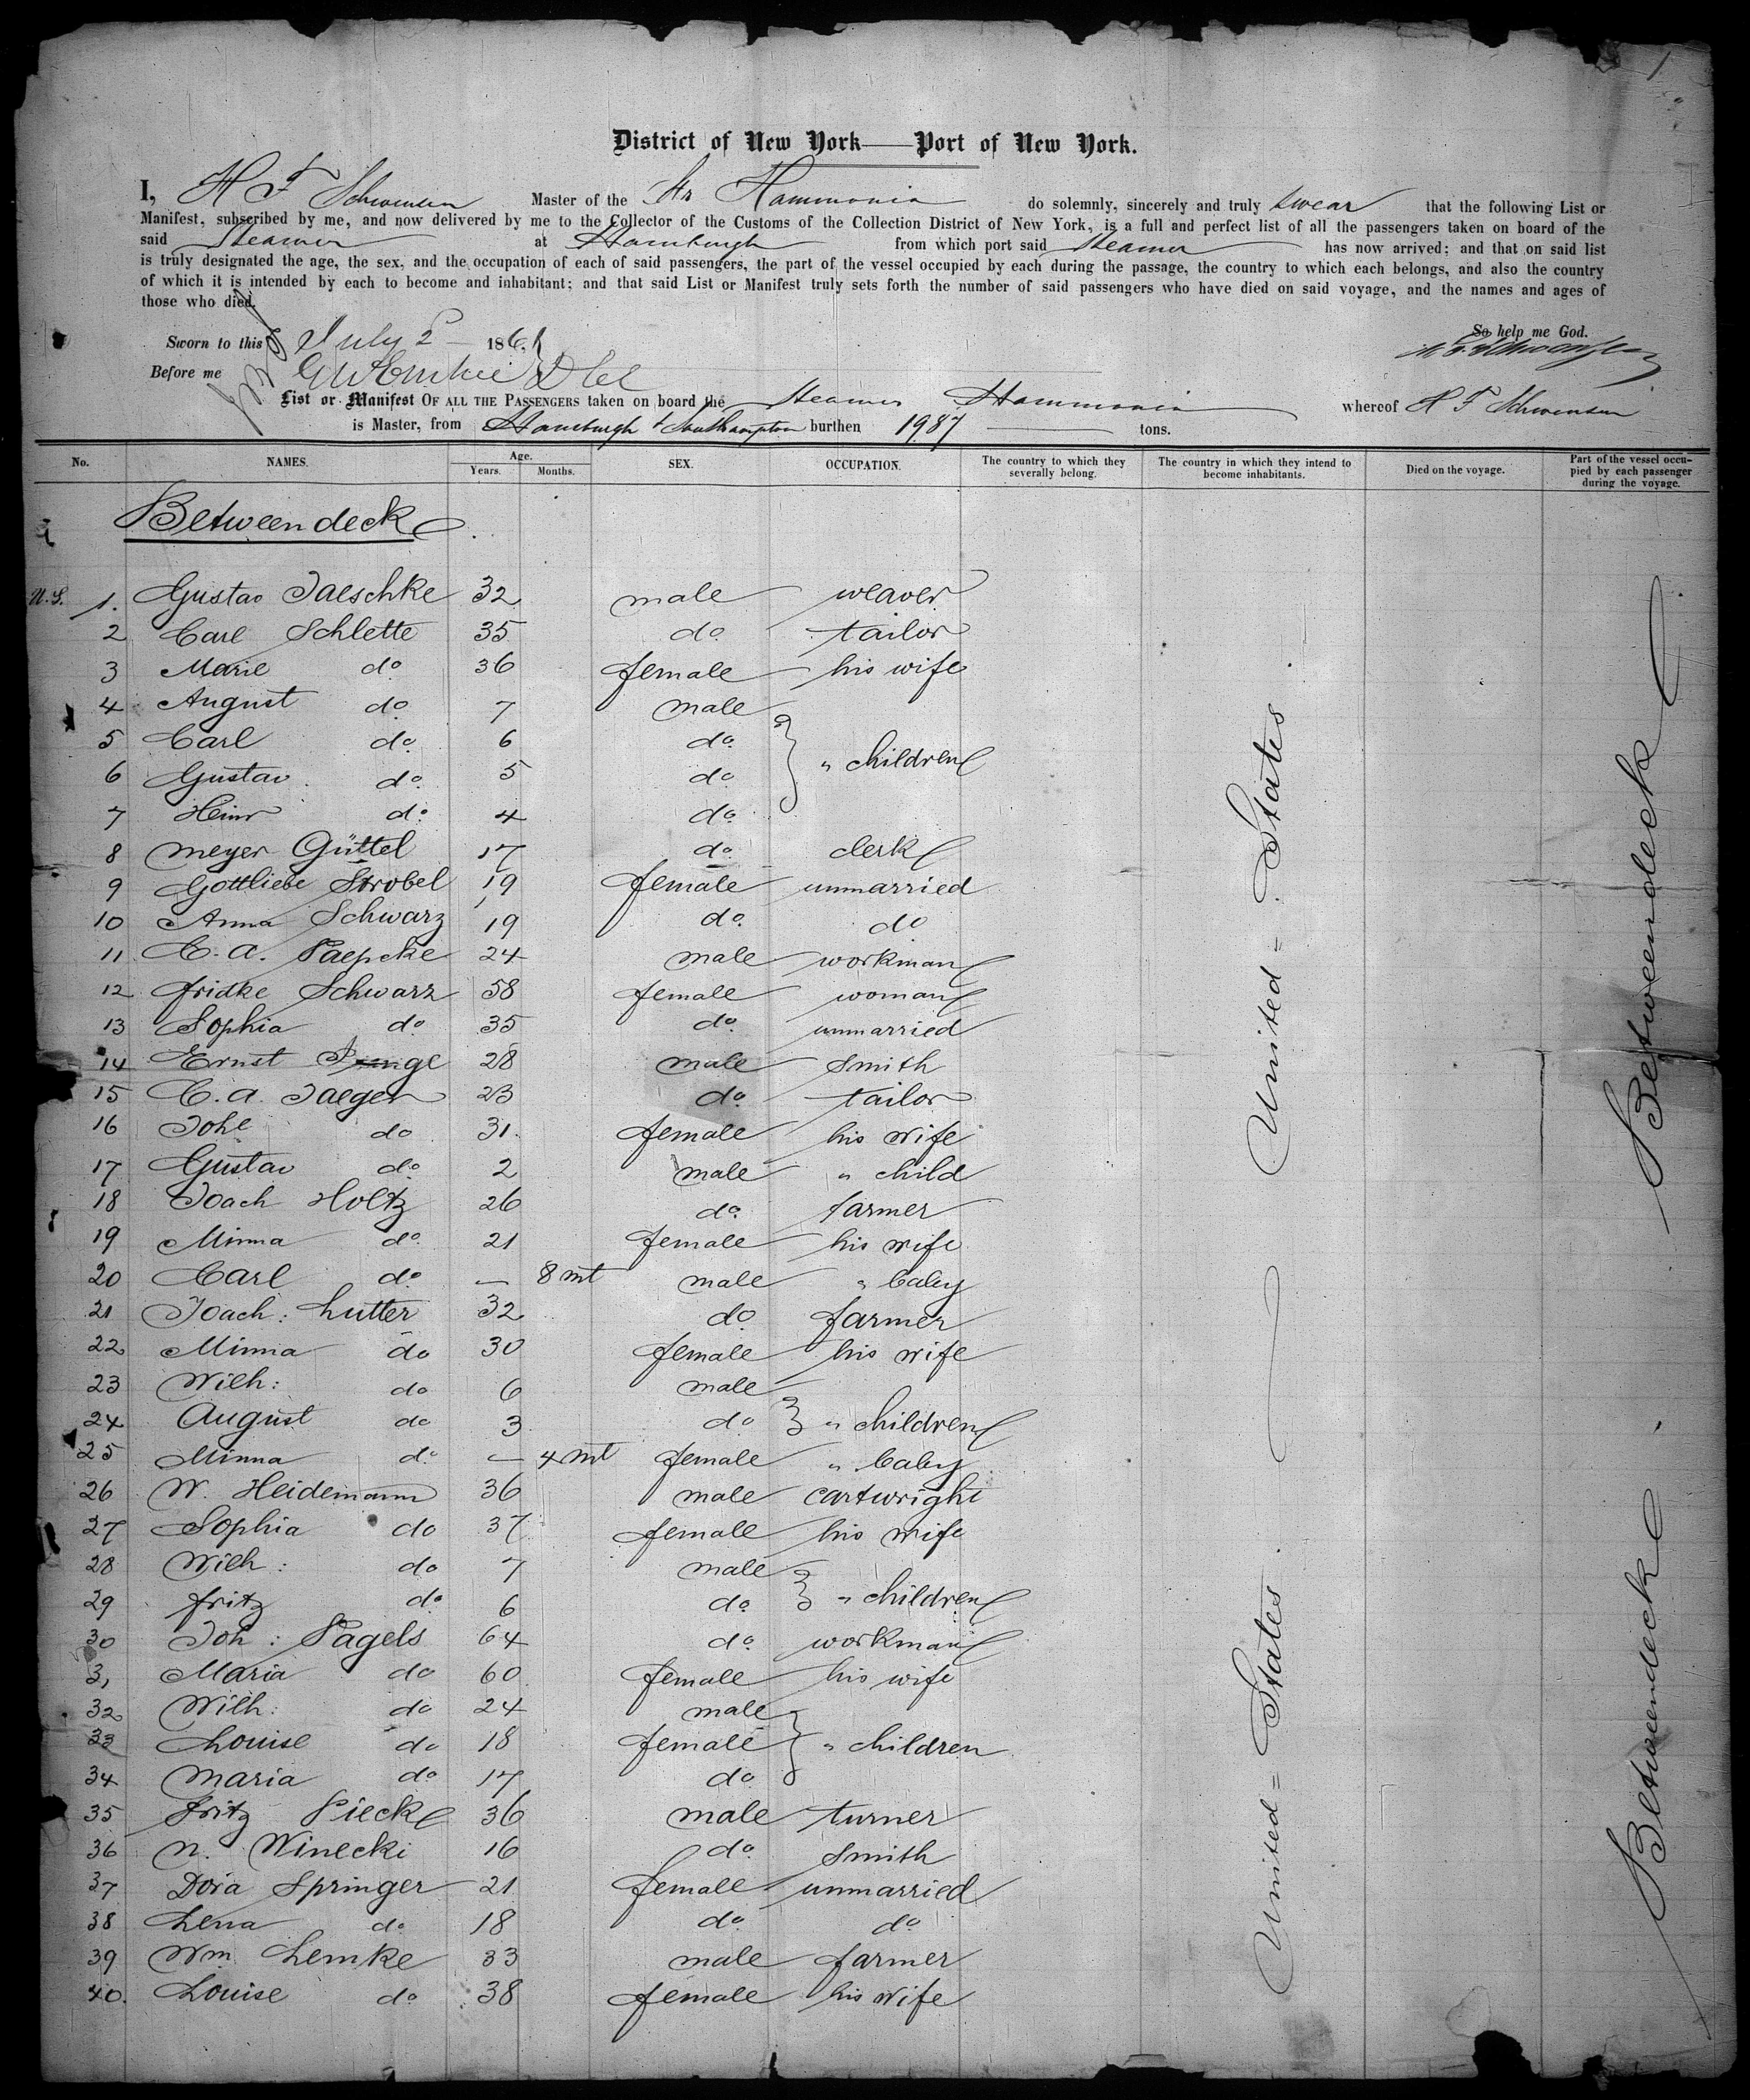 1
District of New York—Port of New York.
I, H F Schwensen Master of the Str Hammonia do solemnly, sincerely and truly swear that the following List or
Manifest, subscribed by me, and now delivered by me to the Collector of the Customs of the Collection District of New York, is a full and perfect list of all the passengers taken on board of the
said Steamer at Hamburgh from which port said Steamer has now arrived; and that on said list
is truly designated the age, the sex, and the occupation of each of said passengers, the part of the vessel occupied by each during the passage, the country to which each belongs, and also the country
of which it is intended by each to become and inhabitant; and that said List or Manifest truly sets forth the number of said passengers who have died on said voyage, and the names and ages of
those who died.
So help me God.
Sworn to this July 2 186
H. F. Schwensen
Before me
List or Manifest OF ALL THE PASSENGERS taken on board the Steamer Hammonia whereof H F Schwensen
is Master, from Hamburgh & Southampton burthen 1987 tons.
No. NAMES. Age. Years. Months. SEX. OCCUPATION. The country to which they severally belong. The country in which they intend to become inhabitants. Died on the voyage. Part of the vessel occupied by each passenger during the voyage.
Between deck
U.S. 1. Gustav Jaeschke 32 male weaver
2 Carl Schlette 35 do tailor
3 Marie do 36 female his wife
4 August do 7 male
5 Carl do 6 do " children
6 Gustav do 5 do
7 Heinr do 4 do
8 Meyer Güttel 17 do clerk
9 Gottliebe Strobel 19 female unmarried
10 Anna Schwarz 19 do do
11 C. A. Paepcke 24 male workman
12 Fridke Schwarz 58 female woman
13 Sophia do 35 do unmarried
14 Ernst 28 male smith
15 C. A. Jaeger 23 do tailor
16 Johe do 31 female his wife
17 Gustav do 2 male " child
18 Joach Holtz 26 do farmer
19 Minna do 21 female his wife
20 Carl do — 8 mt male " baby
21 Joach: Lutter 32 do farmer
22 Minna do 30 female his wife
23 Wilh: do 6 male
24 August do 3 do " children
25 Minna do — 4 mt female " baby
26 W. Heidemann 36 male cartwright
27 Sophia do 37 female his wife
28 Wilh: do 7 male
29 Fritz do 6 do " children
30 Joh: Pagels 64 do workman
31 Maria do 60 female his wife
32 Wilh: do 24 male
33 Louise do 18 female " children
34 Maria do 17 do
35 Fritz Pieck 36 male turner
36 N. Winecki 16 do smith
37 Dora Springer 21 female unmarried
38 Lena do 18 do do
39 Wm. Lemke 33 male farmer
40. Louise do 38 female his wife
United = States
United = States
Betweendeck
Betweendeck